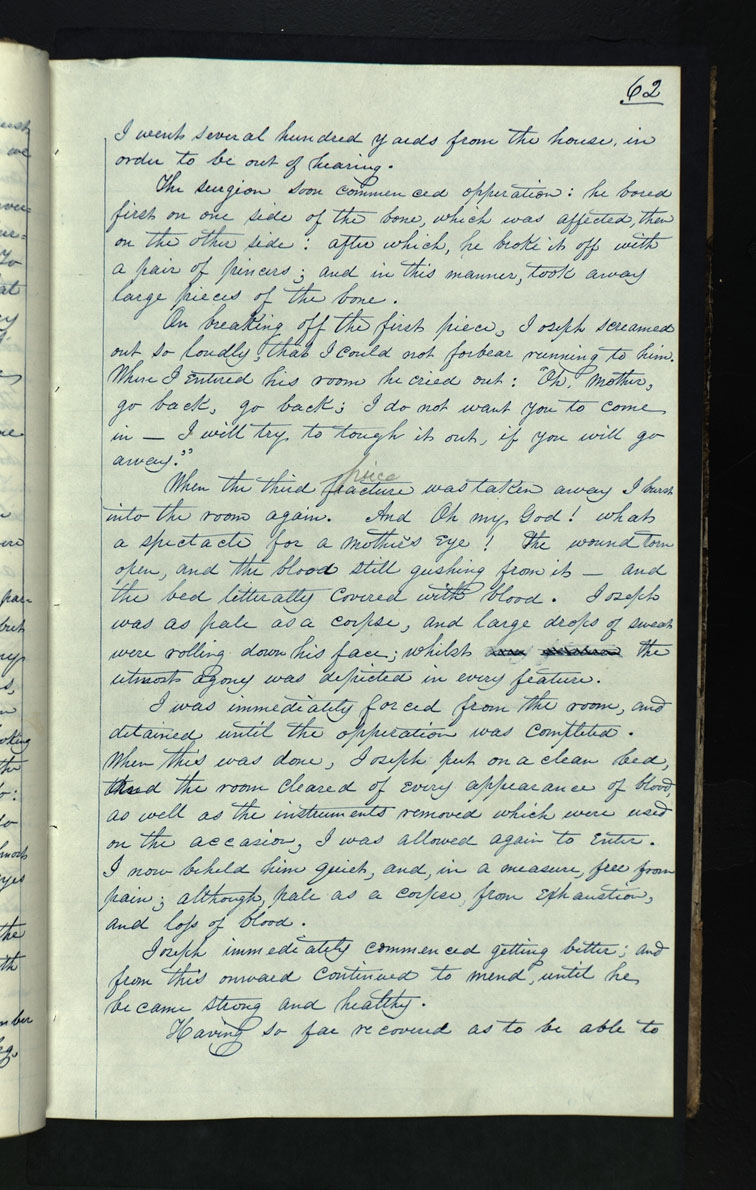 62
I went several hundred yards from the house, in
order to be out of hearing.
The surgeon soon commenced opperation: he bored
first on one side of the bone, which was affected, then
on the other side: after which, he broke it off with
a pair of pincers; and in this manner, took away
large pieces of the bone.
On breaking off the first piece, Joseph screamed
out so loudly, that I could not forbear running to him.
When I entered his room he cried out: "Oh, Mother,
go back, go back; I do not want you to come
in — I will try to tough it out, if you will go
away."
peice
When the third fracture was taken away I burst
into the room again. And Oh my God! what
a spectacle for a mother's eye! The wound torn
open, and the blood still gushing from it — and
the bed litterally covered with blood. Joseph
was as pale as a corpse, and large drops of sweat
were rolling down his face; whilst the
utmost agony was depicted in every feature.
I was immediately forced from the room, and
detained until the opperation was completed.
When this was done, Joseph put on a clean bed,
and the room cleared of every appearance of blood,
as well as the instruments removed which were used
on the accasion, I was allowed again to enter.
I now beheld him quiet, and, in a measure, free from
pain; although, pale as a corpse, from exhaustion,
and loss of blood.
Joseph immediately commenced getting better; and
from this onward continued to mend, until he
became strong and healthy.
Having so far recovered as to be able to